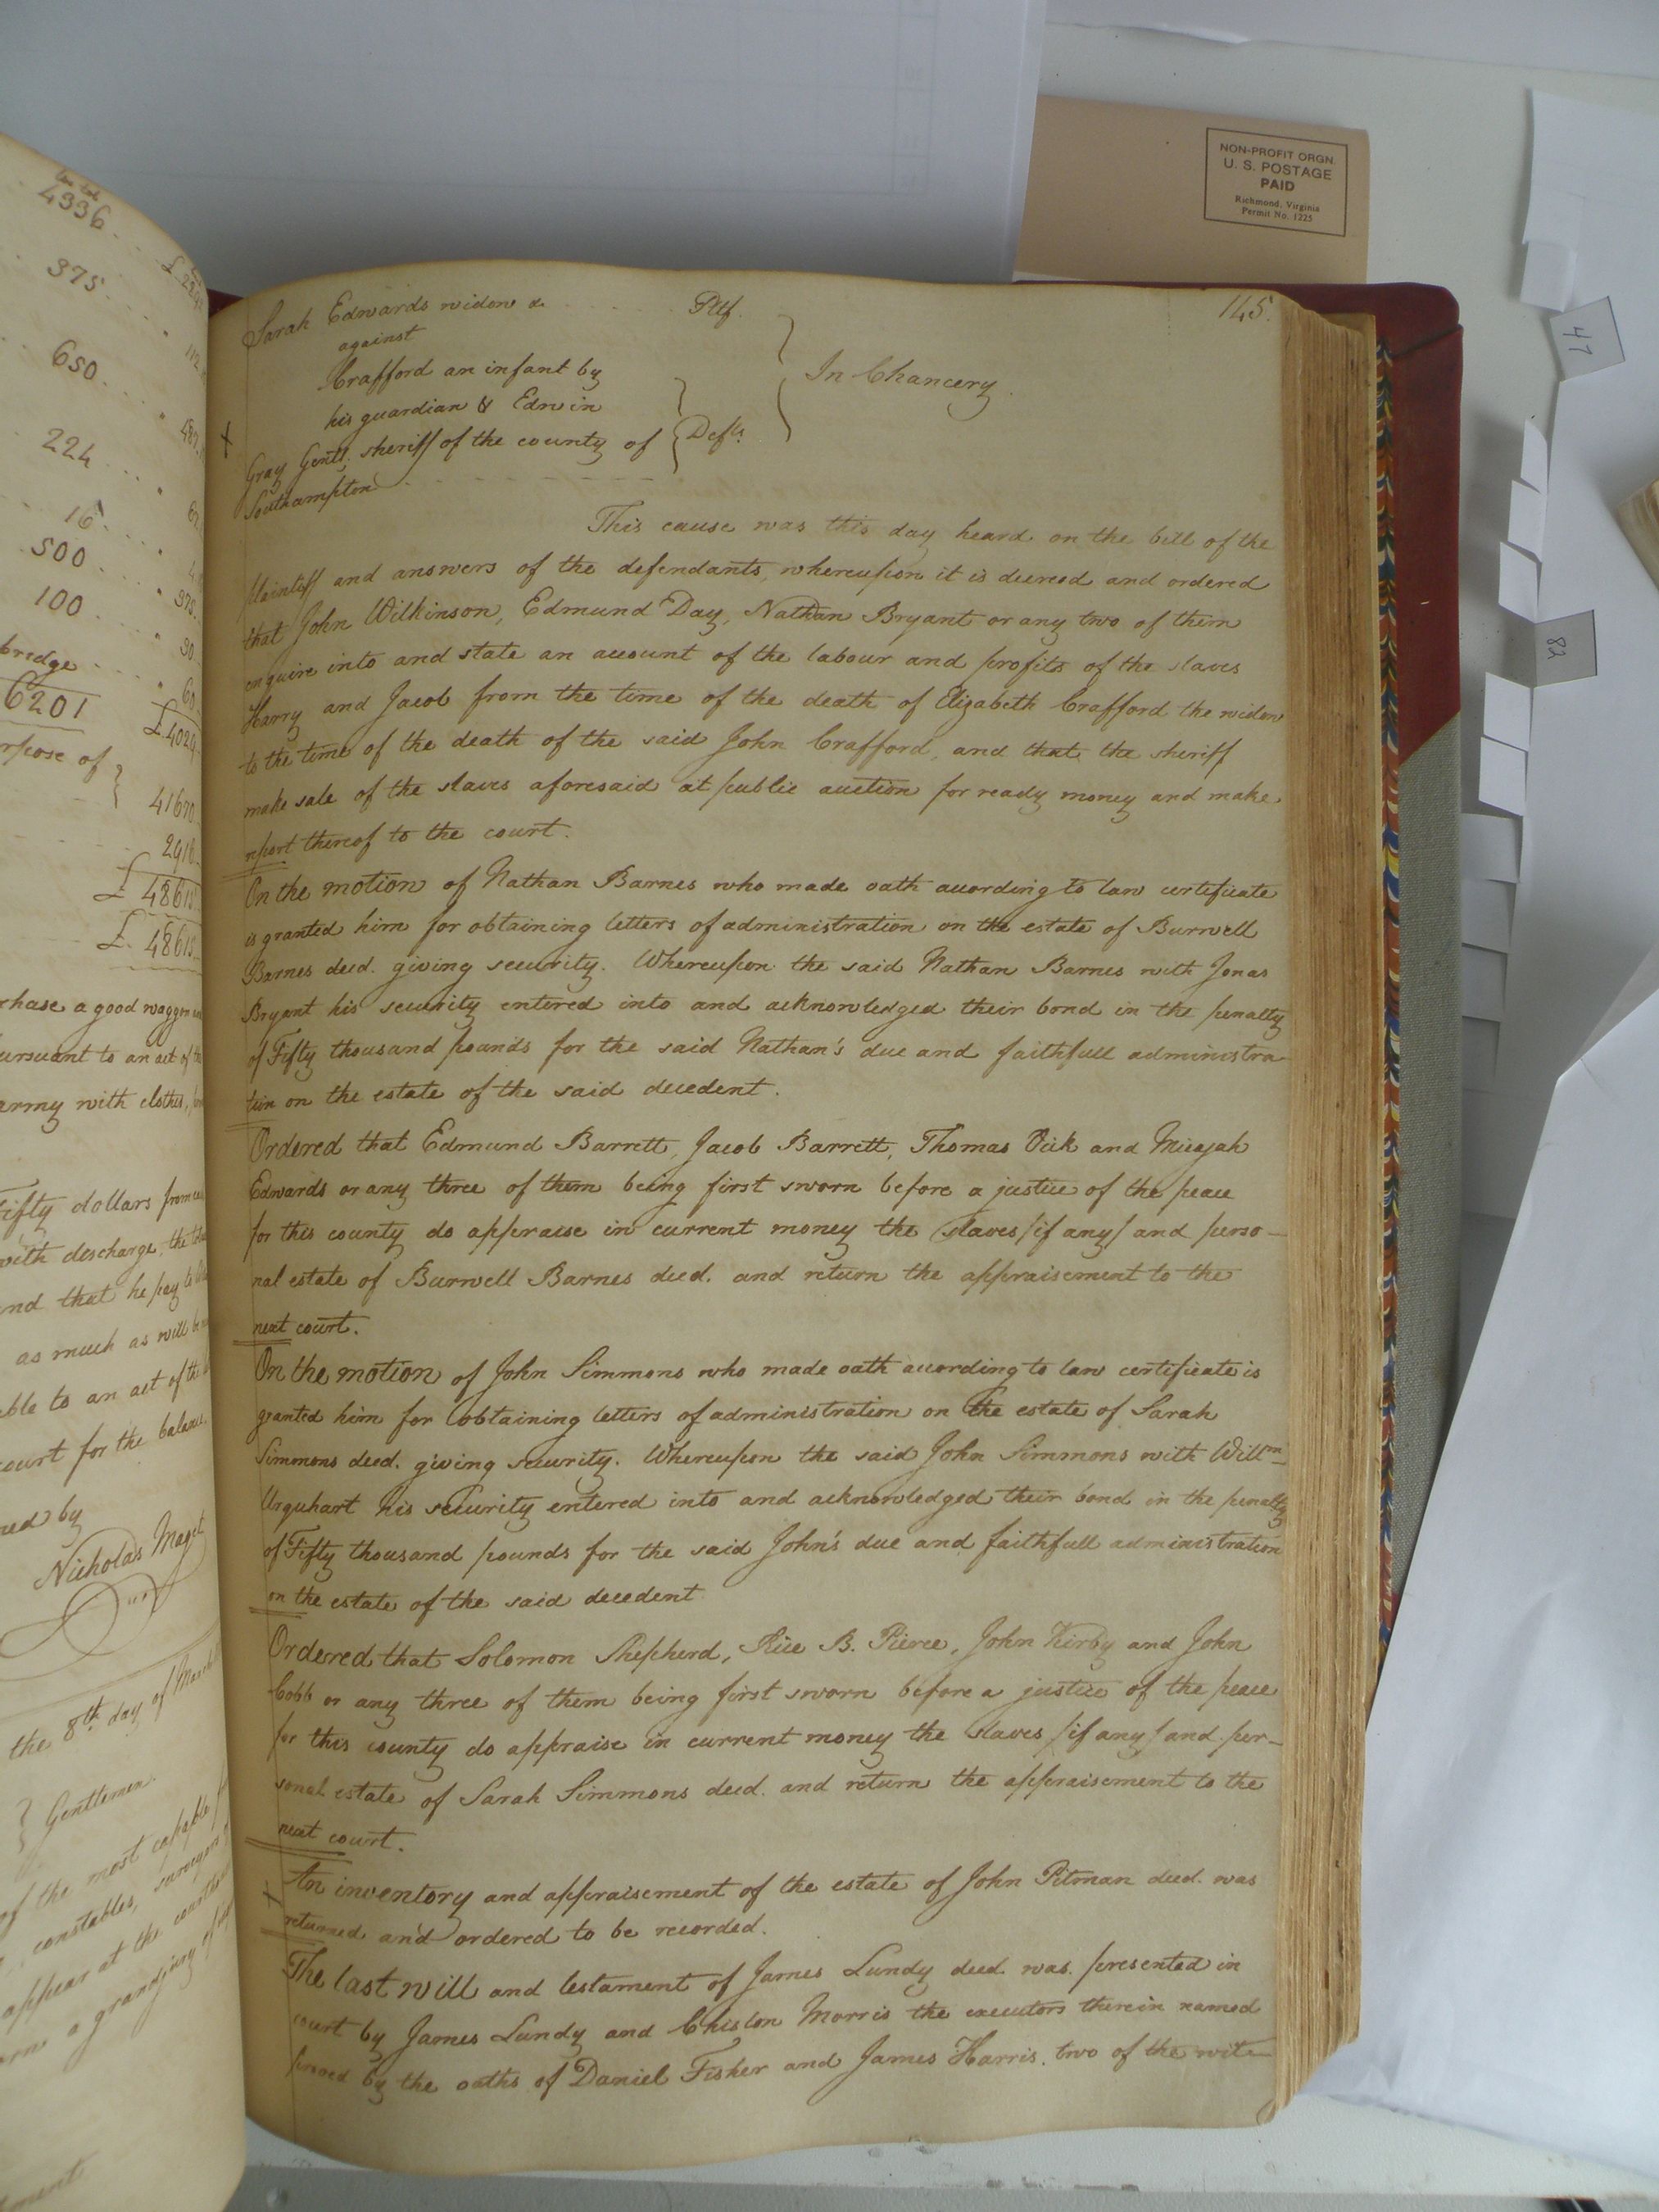 4336
375
650
224
16
500
100
bridge
6201
£4024
rpose of
41670
2916
£ 48615
£ 48615
chase a good waggon
ursuant to an act of the
army with clothes,
Fifty dollars from
with discharge, the
and that he pay to
as much as will be
able to an act of the
court for the balance.
ned by
Nicholas Maget
the 8th day of March
Gentlemen
of the most capable
constables, surveyors
appear at the courthouse
a grandjury of
NON-PROFIT ORGN.
U. S. POSTAGE
PAID
Richmond, Virginia
Permit No. 1225
47
82
145.
Sarah Edwards widow & Pltf.
against
Crafford an infant by
his guardian & Edwin
Gray Gentl. sheriff of the county of Defts.
Southampton
In Chancery.
This cause was this day heard on the bill of the
plaintiff and answers of the defendants, whereupon it is decreed and ordered
that John Wilkinson, Edmund Day, Nathan Bryant or any two of them
enquire into and state an account of the labour and profits of the slaves
Harry and Jacob from the time of the death of Elizabeth Crafford the widow
to the time of the death of the said John Crafford, and that the sheriff
make sale of the slaves aforesaid at public auction for ready money and make
report thereof to the court.
On the motion of Nathan Barnes who made oath according to law certificate
is granted him for obtaining letters of administration on the estate of Burwell
Barnes decd. giving security. Whereupon the said Nathan Barnes with Jonas
Bryant his security entered into and acknowledged their bond in the penalty
of Fifty thousand pounds for the said Nathan's due and faithfull administra-
tion on the estate of the said decedent.
Ordered that Edmund Barrett, Jacob Barrett, Thomas Vick and Micajah
Edwards or any three of them being first sworn before a justice of the peace
for this county do appraise in current money the slaves /if any/ and perso-
nal estate of Burwell Barnes decd. and return the appraisement to the
next court.
On the motion of John Simmons who made oath according to law certificate is
granted him for obtaining letters of administration on the estate of Sarah
Simmons decd. giving security. Whereupon the said John Simmons with Willm
Urquhart his security entered into and acknowledged their bond in the penalty
of Fifty thousand pounds for the said John's due and faithfull administration
on the estate of the said decedent
Ordered that Solomon Shepherd, Rice B. Pierce, John Kirby and John
Cobb or any three of them being first sworn before a justice of the peace
for this county do appraise in current money the slaves /if any/ and per-
sonal estate of Sarah Simmons decd. and return the appraisement to the
next court.
An inventory and appraisement of the estate of John Pitman decd. was
returned and ordered to be recorded.
The last will and testament of James Lundy decd. was presented in
court by James Lundy and Chislon Morris the executors therein named
proved by the oaths of Daniel Fisher and James Harris, two of the wit-